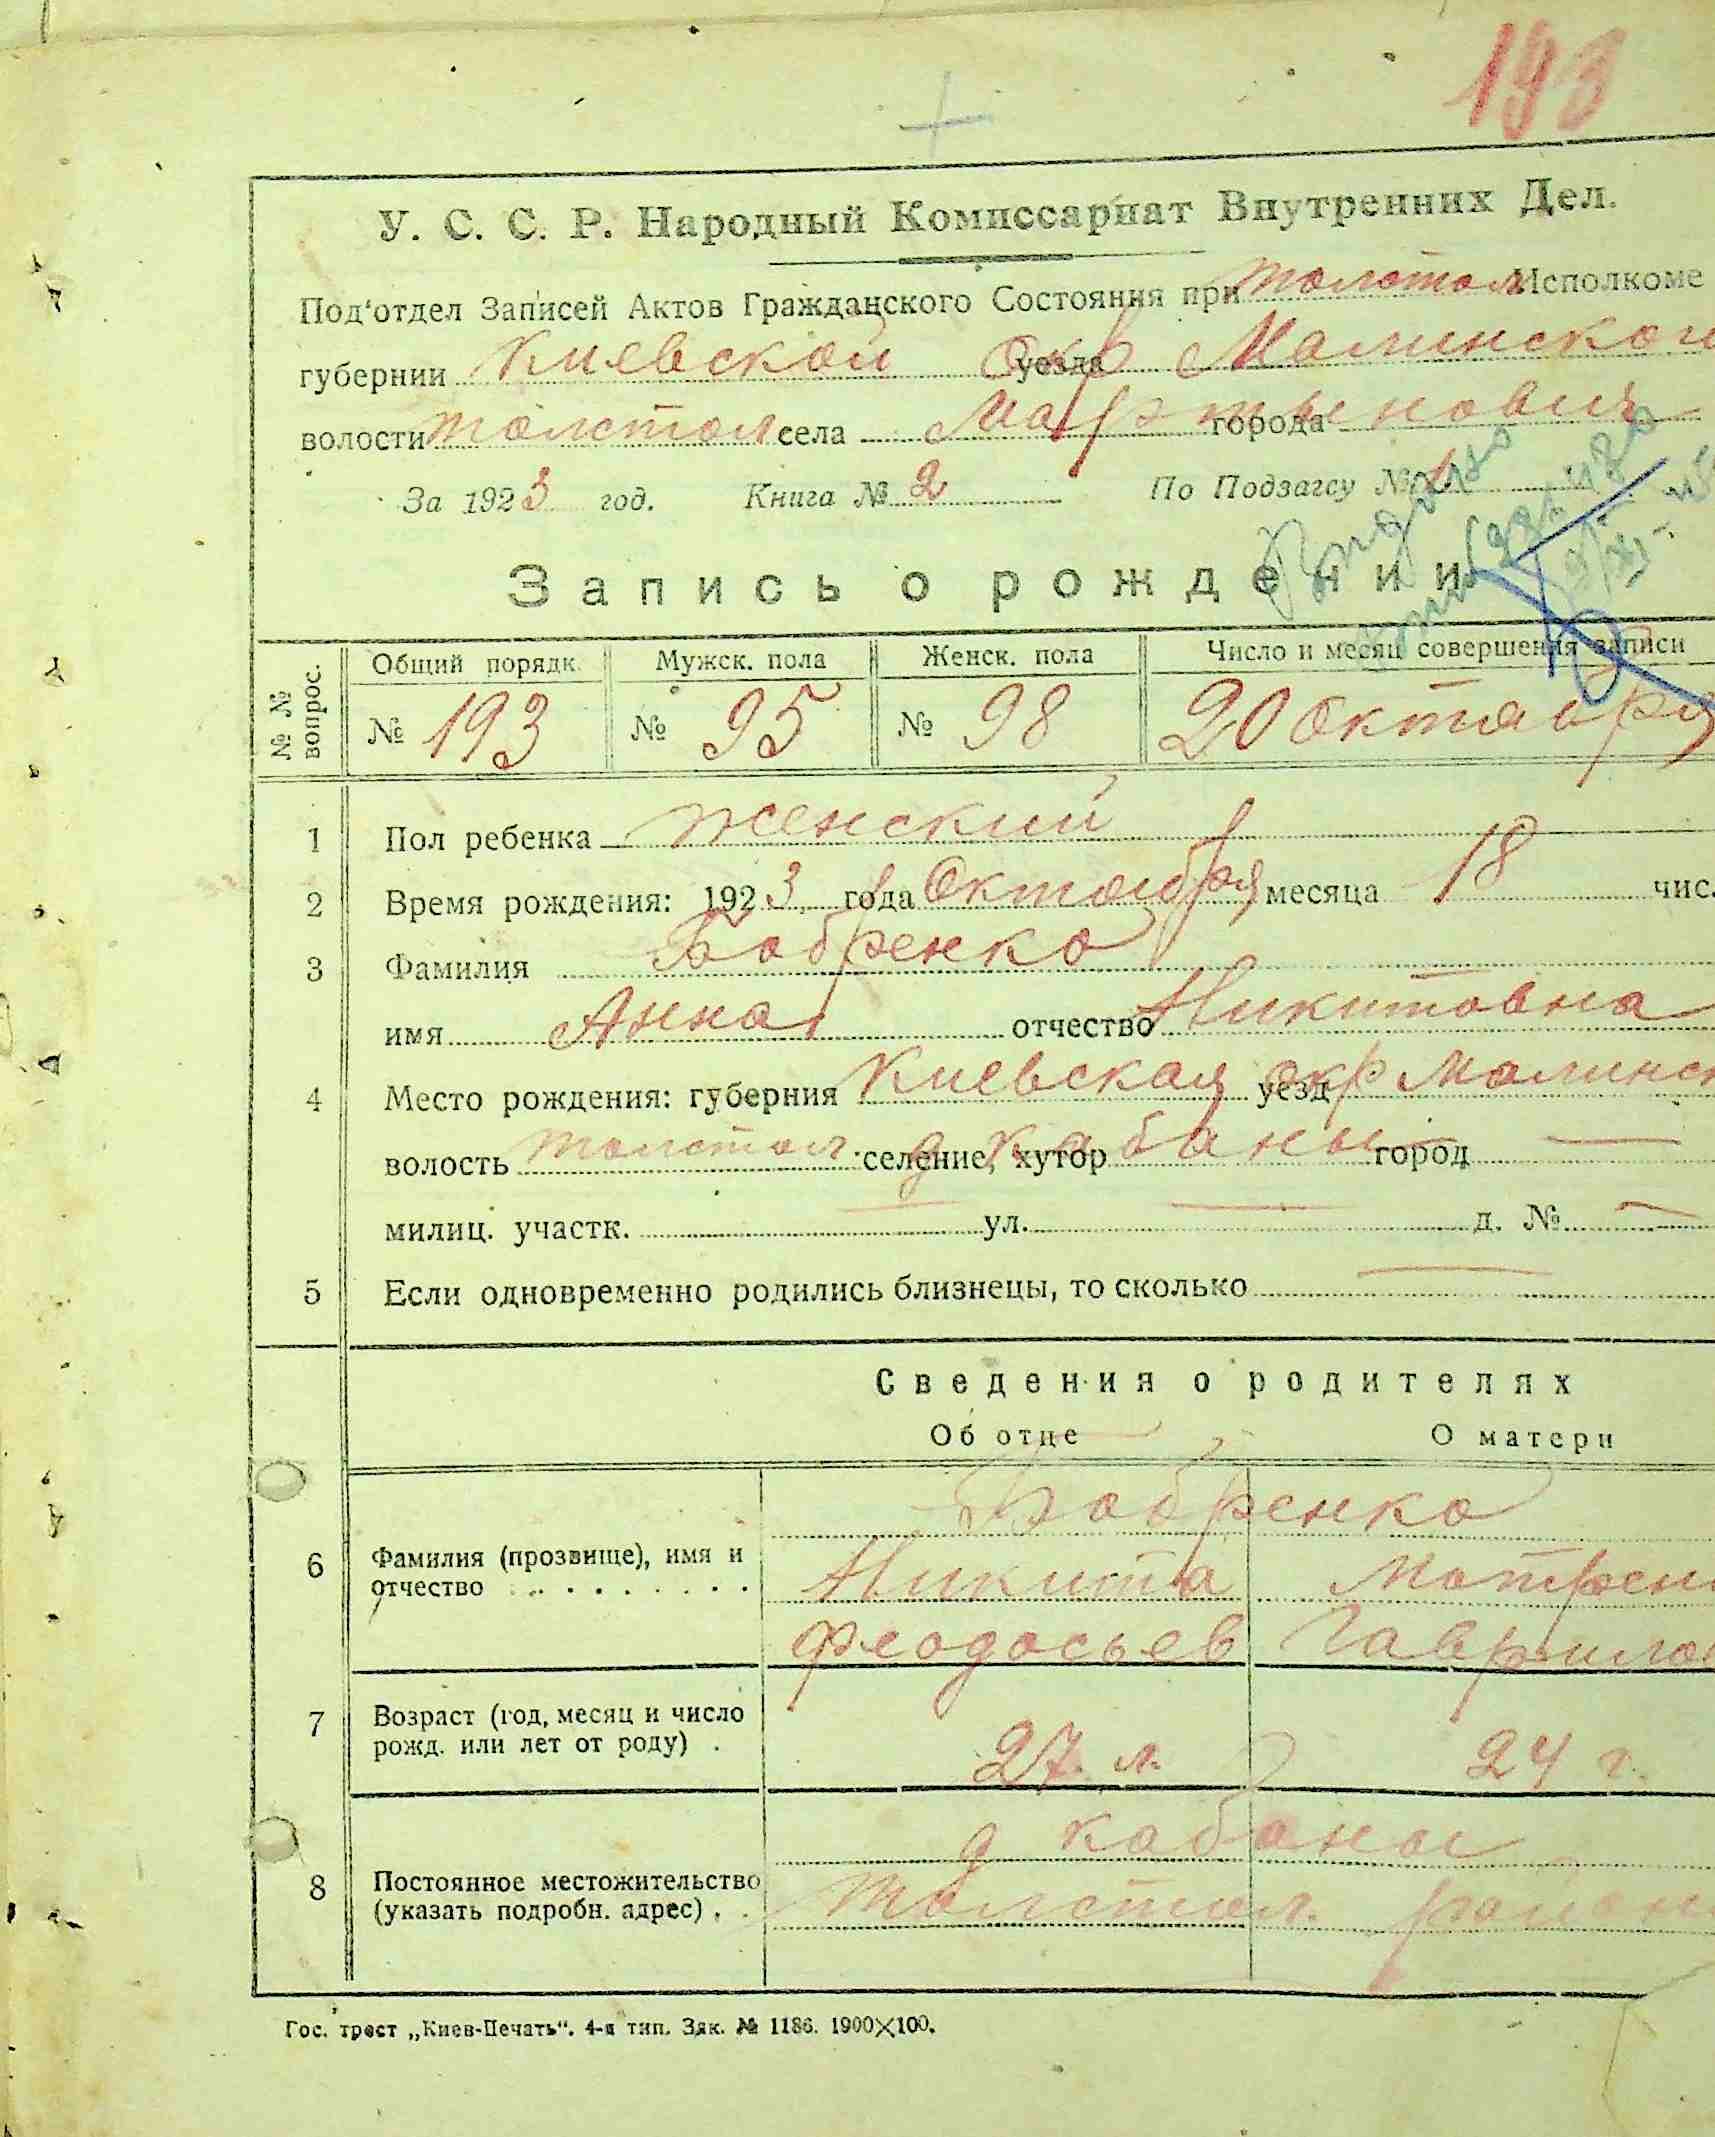 193
У. С. С. Р. Народный Комиссариат Внутренних Дел.
Под'отдел Записей Актов Гражданского Состояния при Толстол Исполкоме
губернии Киевской уезда окр Малинского
волости Толстол села Мартынович города
За 1923 год. Книга № 2 По Подзагсу № 1
Запись о рождении
№ № вопрос. Общий порядк. Мужск. пола Женск. пола Число и месяц совершения записи
№ 193 № 95 № 98 20 Октября
1 Пол ребенка женский
2 Время рождения: 1923 года Октября месяца 18 чис.
3 Фамилия Бобренко
имя Анна отчество Никитовна
4 Место рождения: губерния Киевская уезд окр Малинск
волость Толстол селение, хутор д Кабаны город —
милиц. участк. — ул. — д. № —
5 Если одновременно родились близнецы, то сколько —
Сведения о родителях
Об отце О матери
Бобренко
6 Фамилия (прозвище), имя и отчество Никита Матрен
Феодосьев Гаврилов
7 Возраст (год, месяц и число рожд. или лет от роду) 27 л. 24 г.
д Кабаны
8 Постоянное местожительство (указать подробн. адрес) Толстол. район
Гос. трест „Киев-Печать“. 4-я тип. Зак. № 1186. 1900×100.